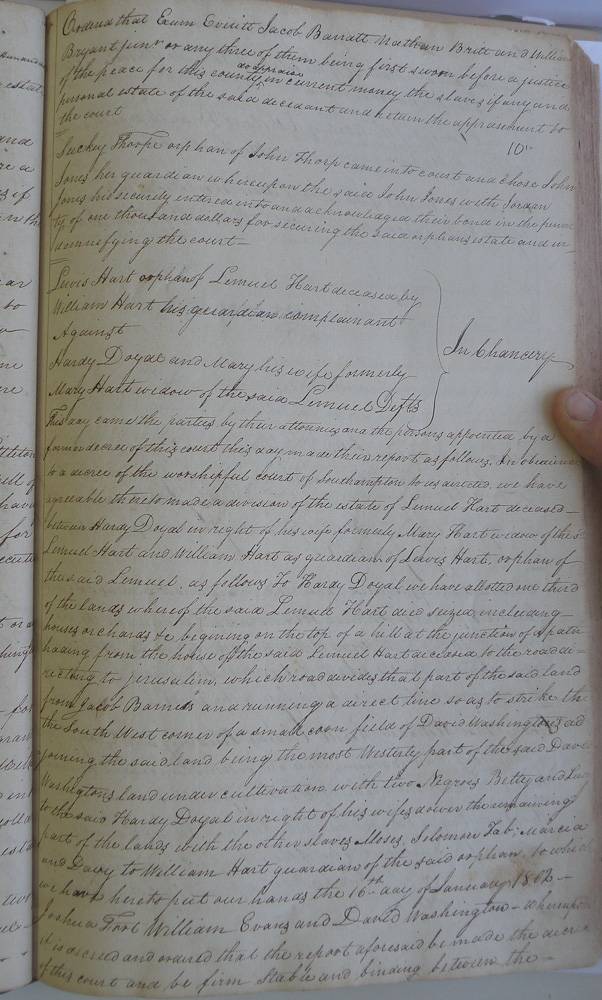 Ordered that Exum Everitt Jacob Barratt Nathan Britt and William
Bryant junr or any three of them being first sworn before a justice
of the peace for this county do appraise in current money the slaves if any and
personal estate of the said decedant and return the apprasement to
the court
10"
Suckey Thorpe orphan of John Thorp came into court and chose John
Jones her guardian whereupon the said John Jones with Jordan
Jones his security entered into and acknowledged their bond in the penal
ty of one thousand dollars for securing the said orphans estate and in
demnifying the court —
Lewis Hart orphan of Lemuel Hart deceased by
William Hart his guardian complainant
Against
Hardy Doyal and Mary his wife formerly
Mary Hart widow of the said Lemuel Defts
In Chancery
This day came the parties by their attornies and the persons appointed by a
former decree of this court this day made their report as follows, In obedience
to a decree of the worshipful court of Southampton to us directed, we have
agreeable thereto made a division of the estate of Lemuel Hart deceased —
between Hardy Doyal in right of his wife formerly Mary Hart widow of the sd
Lemuel Hart and William Hart as guardian of Lewis Hart, orphan of
the said Lemuel, as follows To Hardy Doyal we have allotted one third
of the lands whereof the said Lemuel Hart died seized including
houses orchards &c begining on the top of a hill at the junction of a path
leading from the house of the said Lemuel Hart deceased to the road di—
recting to Jerusalem, which road divides that part of the said land
from Jacob Barnes's and running a direct line so as to strike the
the South West corner of a small corn field of David Washingtons ad
joining the said land being the most Westerly part of the said David
Washingtons land under cultivation with two Negroes Betty and Lucy
to the said Hardy Doyal in right of his wifes dower the remaining
part of the lands with the other slaves Moses, Solomon Tab, Marcia
and Davy to William Hart guardian of the said orphan, to which
we have hereto put our hands the 16th day of January 1802 —
Joshua Fort William Evans and David Washington — whereupon
it is decreed and ordered that the report aforesaid be made the decree
of this court and be firm Stable and binding between the —